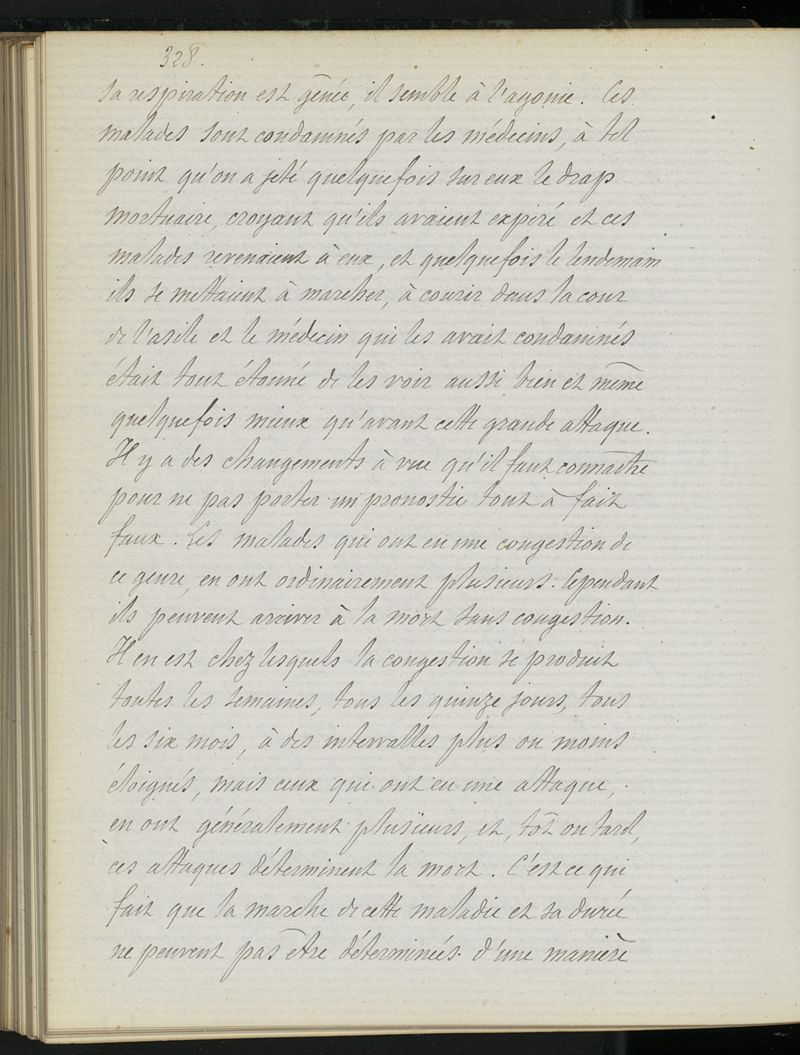 328.
sa respiration est gênée, il semble à l'agonie. Ces
malades sont condamnés par les médecins, à tel
point qu'on a jeté quelquefois sur eux le drap
mortuaire, croyant qu'ils avaient expiré et ces
malades revenaient à eux, et quelquefois le lendemain
ils se mettaient à marcher, à courir dans la cour
de l'asile et le médecin qui les avait condamnés
était tout étonné de les voir aussi bien et même
quelquefois mieux qu'avant cette grande attaque.
Il y a des changements à vue qu'il faut connaître
pour ne pas porter un pronostic tout à fait
faux. Les malades qui ont eu une congestion de
ce genre, en ont ordinairement plusieurs. Cependant
ils peuvent arriver à la mort sans congestion.
Il en est chez lesquels la congestion se produit
toutes les semaines, tous les quinze jours, tous
les six mois, à des intervalles plus ou moins
éloignés, mais ceux qui ont eu une attaque,
en ont généralement plusieurs, et, tôt ou tard,
ces attaques déterminent la mort. C'est ce qui
fait que la marche de cette maladie et sa durée
ne peuvent pas être déterminées d'une manière